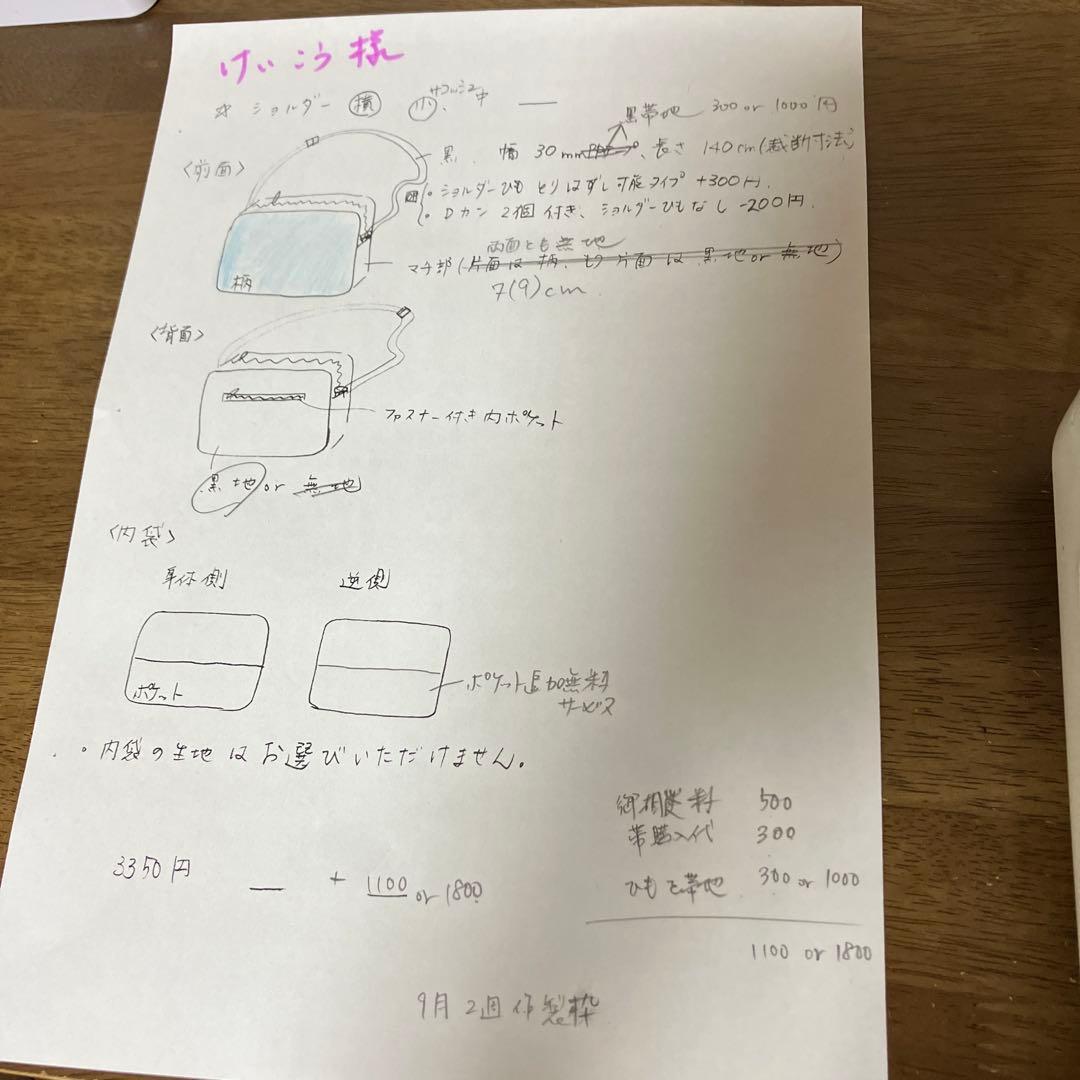 けいこう様
☆ ショルダー 横 ホ、サコッシュ中
黒帯地 300 or 1000円
〈前面〉
黒 幅 30mm、長さ 140cm(裁断寸法)
・ショルダーひも とりはずし可能タイプ +300円.
・Dカン 2個 付き、ショルダーひもなし -200円.
両面とも無地
マチ部(片面は柄、もう片面は黒地or無地)
7(9)cm
柄
〈背面〉
ファスナー付き内ポケット
黒地 or 無地
〈内袋〉
身体側 逆側
ポケット
ポケット追加無料
サービス
・内袋の生地はお選びいただけません。
御相談料 500
帯購入代 300
ひもを帯地 300 or 1000
1100 or 1800
3350円 + 1100 or 1800
9月2週作製枠